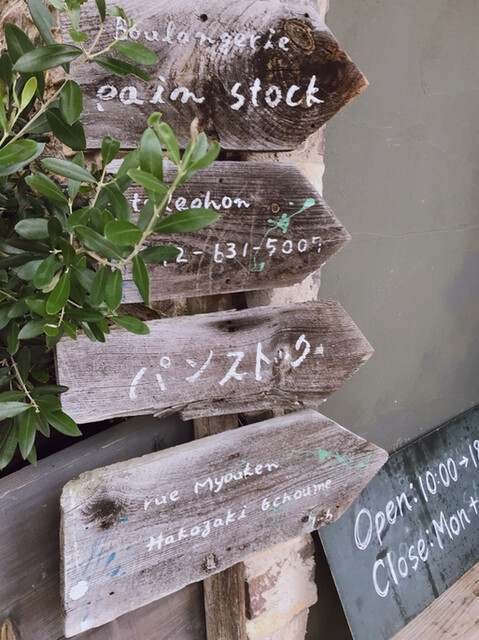 Boulangerie
pain stock
telephon
2-631-5007
パンストック
rue Myouken
Hakozaki 6choume
Open:10:00→1
Close:Mon+